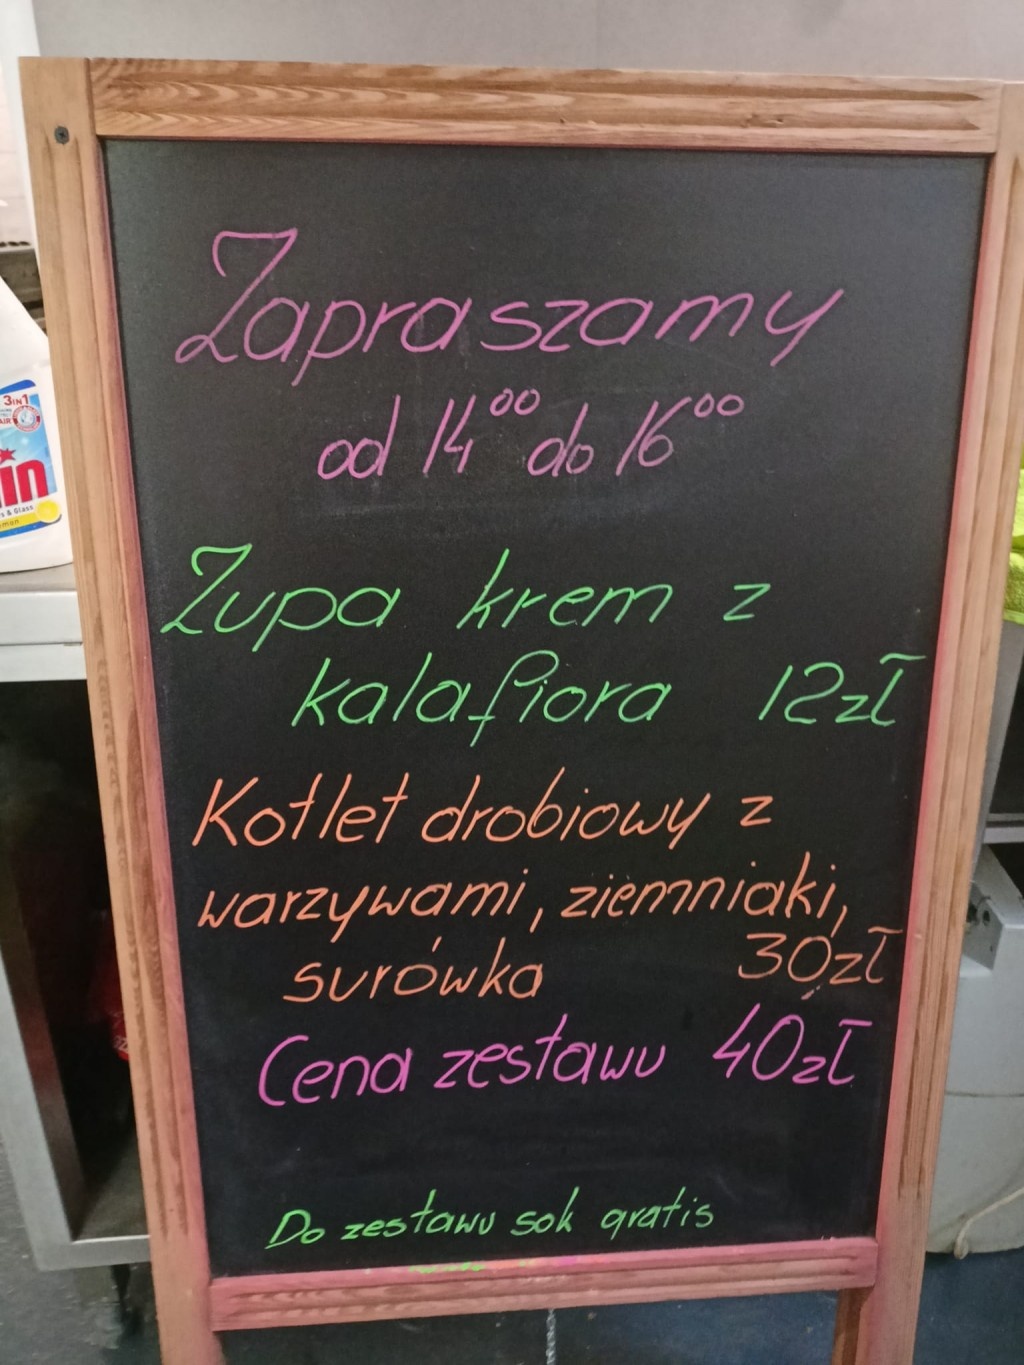 Zapraszamy
od 14⁰⁰ do 16⁰⁰
Zupa krem z
kalafiora 12zł
Kotlet drobiowy z
warzywami, ziemniaki,
surówka 30zł
Cena zestawu 40zł
Do zestawu sok gratis
3IN1
in
s & Glass